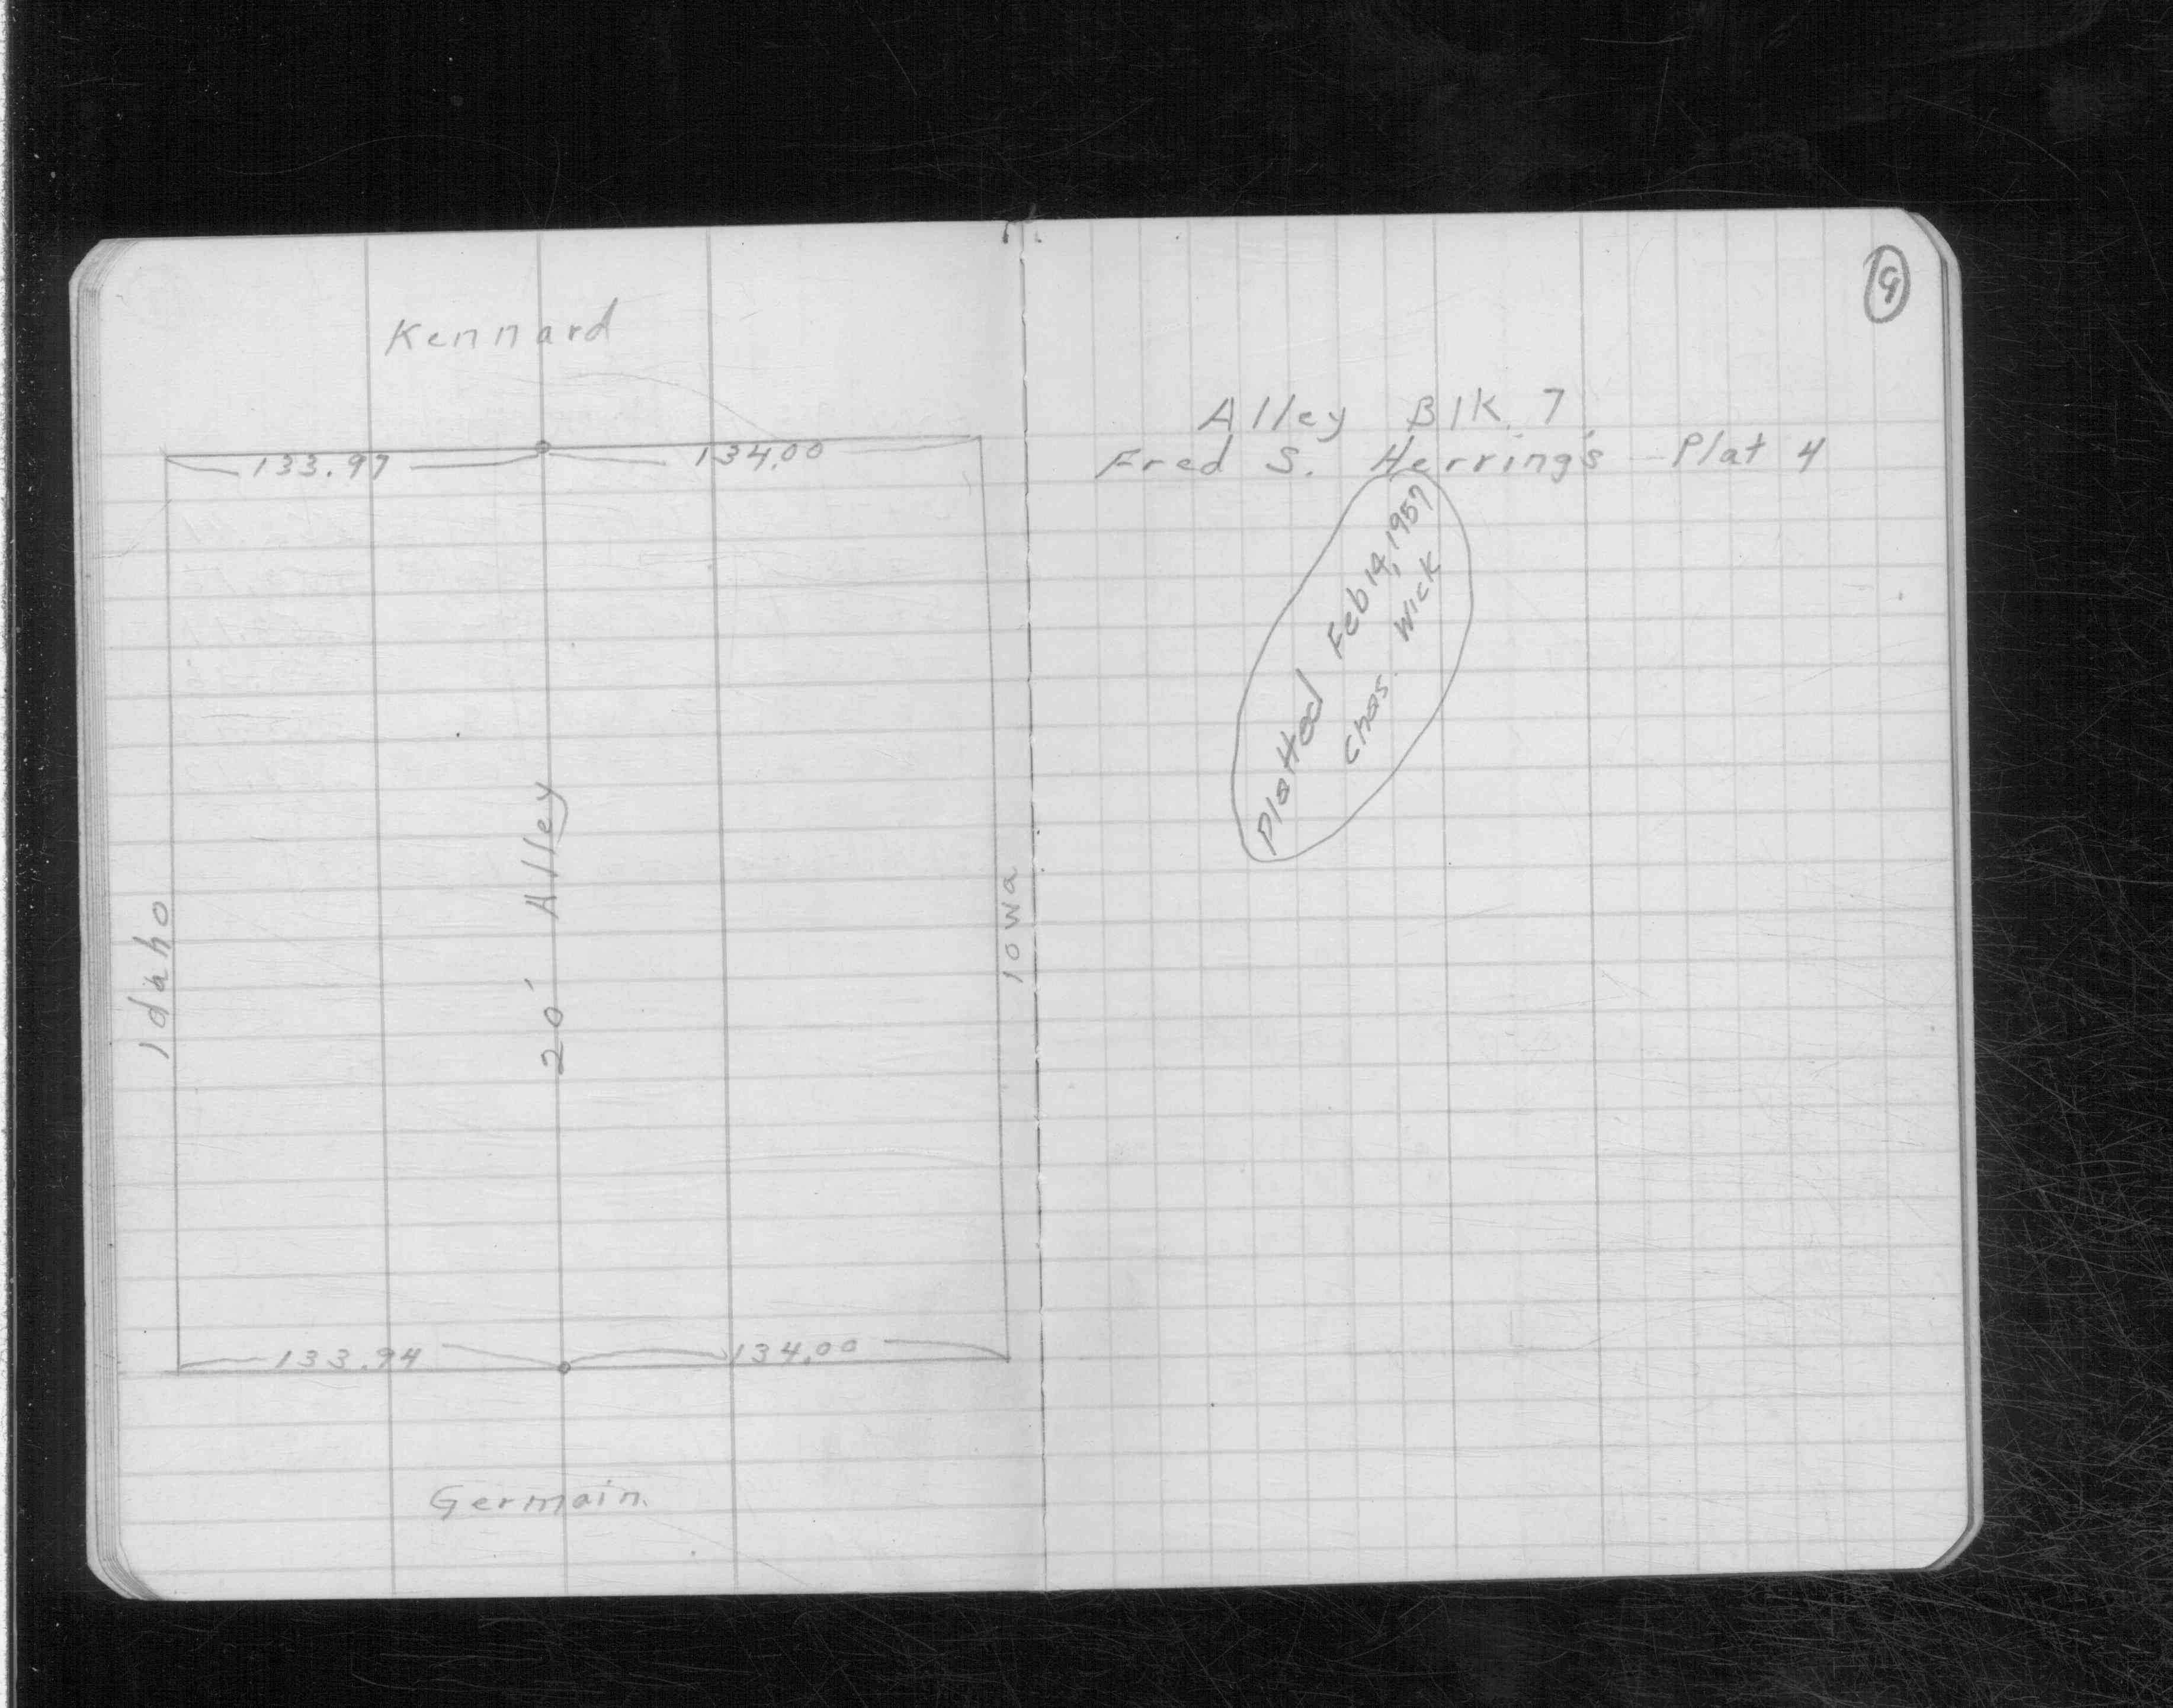 9
Kennard
133.97 134.00
Idaho
20' Alley
Iowa
133.94 134.00
Germain.
Alley Blk. 7
Fred S. Herring's Plat 4
Plotted Feb 14, 1957
Chas. Wick